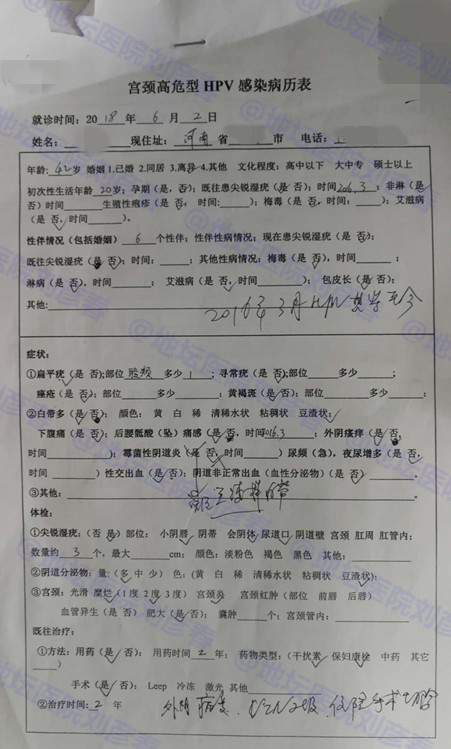 宫颈高危型 HPV 感染病历表
就诊时间：2018 年 6 月 2 日
姓名： 现住址：河南 省 市 电话：
年龄：42岁 婚姻 1.已婚 2.同居 3.离异 4.其他 文化程度：高中以下 大中专 硕士以上
初次性生活年龄 20岁；孕期（是，否）；既往患尖锐湿疣（是 否）；时间2016.3；非淋（是
否）时间 生殖性疱疹（是 否， 时间： ）；梅毒（是 否，时间： ）；艾滋病
（是 否，时间 ）。
性伴情况（包括婚姻） 6 个性伴；性伴性病情况：现在患尖锐湿疣（是 否）；
既往尖锐湿疣（是 否）；时间： ；其他性病情况：梅毒（是 否），时间 ；
淋病（是 否），时间 ； 艾滋病（是 否，时间 ）； 包皮长（是 否）；
其他： 2016年3月HPV 至今
症状：
①扁平疣（是 否）；部位 脸颊 多少 1 ；寻常疣（是 否）；部位 多少 ；
痤疮（是 否）；部位 多少 ；黄褐斑（是 否）；部位 多少 ；
②白带多（是 否）； 颜色： 黄 白 稀 清稀水状 粘稠状 豆渣状；
下腹痛（是 否）；后腰骶酸（坠）痛感（是 否，时间2016.3 ；外阴瘙痒（是 否，
时间 ）；霉菌性阴道炎（是 否，时间 ）尿频（急），夜尿增多（是 否，
时间 ）性交出血（是 否）；阴道非正常出血（血性分泌物）（是 否） 。
③其他： 豆渣样白带
体检：
①尖锐湿疣：（否 是）部位： 小阴唇 阴蒂 会阴体 尿道口 阴道壁 宫颈 肛周 肛管内；
数量约 3 个，最大 cm； 颜色：淡粉色 褐色 黑色 其他：
②阴道分泌物：量：（多 中 少） 色：（黄 白 稀 清稀水状 粘稠状 豆渣状）；
③宫颈：光滑 糜烂（1度 2度 3度） 宫颈炎 宫颈红肿（部位 前唇 后唇）
血管异生（是 否） 肥大（是 否）； 囊肿 个；宫颈管内：
既往治疗：
①方法：用药（是 否）； 用药时间 2 年； 药物类型：（干扰素 保妇康栓 中药 其它
）
手术（是 否）； Leep 冷冻 激光 其他
②治疗时间：2 年 外阴 CIN2级， 住院手术